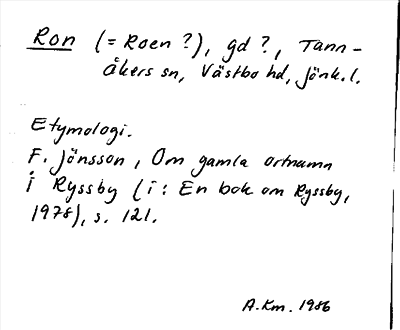 Ron (= Roen ?), gd ?, Tann-
åkers sn, Västbo hd, Jönk.l.
Etymologi.
F. Jönsson, Om gamla ortnamn
i Ryssby (i: En bok om Ryssby,
1978), s. 121.
A.Km. 1986